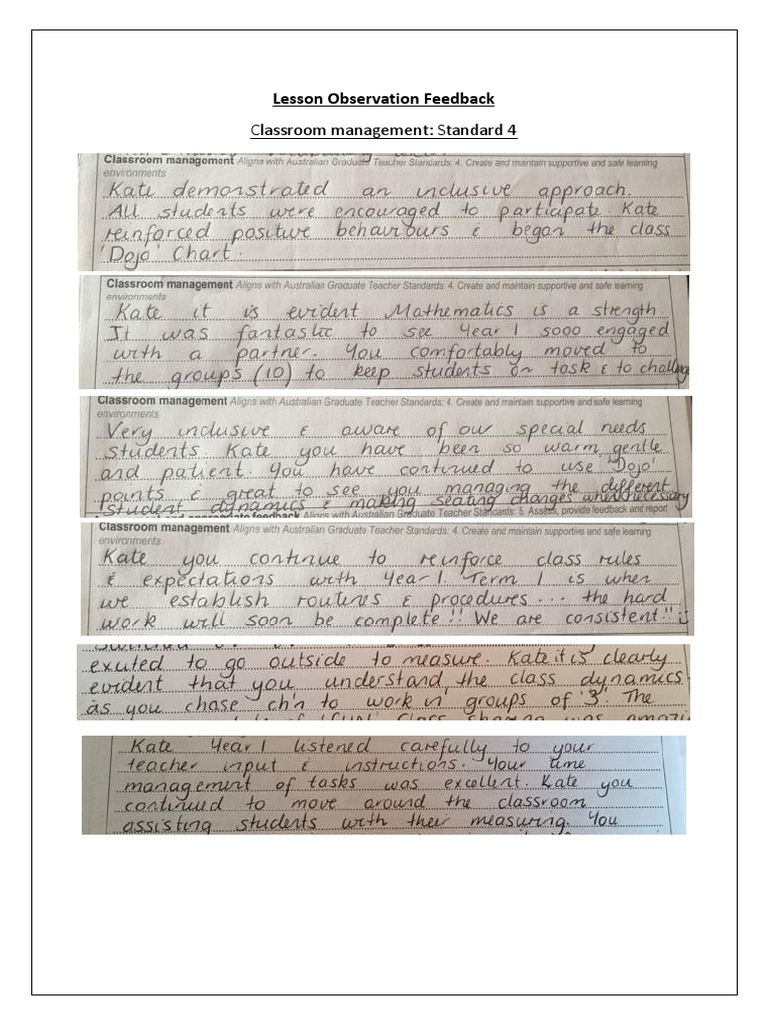 Lesson Observation Feedback
Classroom management: Standard 4
Classroom management Aligns with Australian Graduate Teacher Standards: 4. Create and maintain supportive and safe learning
environments
Kate demonstrated an inclusive approach.
All students were encouraged to participate Kate
reinforced positive behaviours & began the class
'Dojo' Chart.
Classroom management Aligns with Australian Graduate Teacher Standards: 4. Create and maintain supportive and safe learning
environments
Kate it is evident Mathematics is a strength
It was fantastic to see Year 1 sooo engaged
with a partner. You comfortably moved to
the groups (10) to keep students on task & to challenge
Classroom management Aligns with Australian Graduate Teacher Standards: 4. Create and maintain supportive and safe learning
environments
Very inclusive & aware of our special needs
students. Kate you have been so warm, gentle
and patient. You have continued to use 'Dojo'
points & great to see you managing the different
student dynamics & making seating changes when necessary
and appropriate feedback Aligns with Australian Graduate Teacher Standards: 5. Assess, provide feedback and report
Classroom management Aligns with Australian Graduate Teacher Standards: 4. Create and maintain supportive and safe learning
environments
Kate you continue to reinforce class rules
& expectations with Year 1. Term 1 is when
we establish routines & procedures... the hard
work will soon be complete!! We are consistent!! :)
exuted to go outside to measure. Kate it is clearly
evident that you understand the class dynamics
as you chose ch'n to work in groups of '3'. The
Kate Year 1 listened carefully to your
teacher input & instructions. Your time
management of tasks was excellent. Kate you
continued to move around the classroom
assisting students with their measuring. You